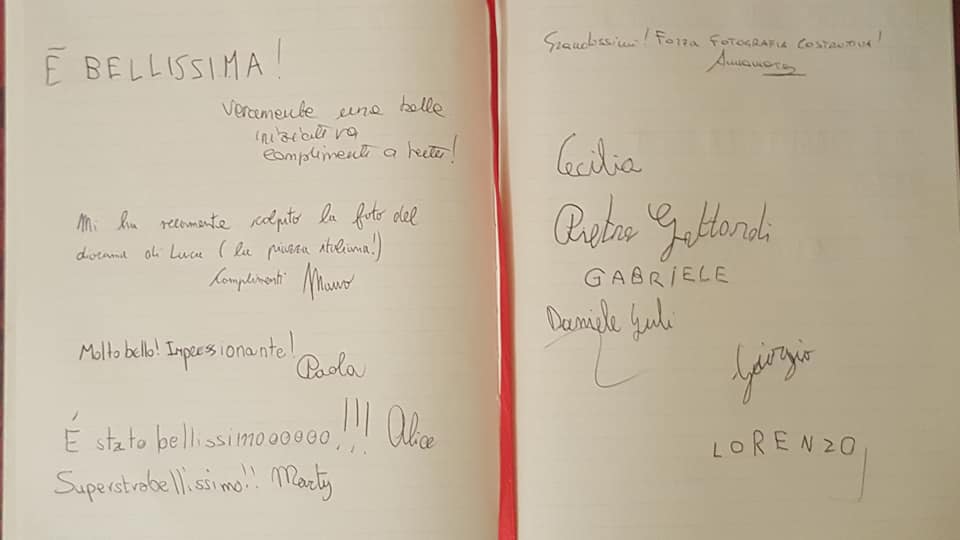 È BELLISSIMA!
Veramente una bella
iniziativa
complimenti a tutti!
Mi ha veramente colpito la foto del
diorama di Luca (la piazza italiana!)
Complimenti Mauro
Molto bello! Impressionante!
Paola
É stato bellissimooooo!!! Alice
Superstrabellissimo!! Marty
Grandissimi! Forza FOTOGRAFIA COSTRUTIVA!
Cecilia
Pietro Gottardi
GABRIELE
Daniele
Giorgio
LORENZO